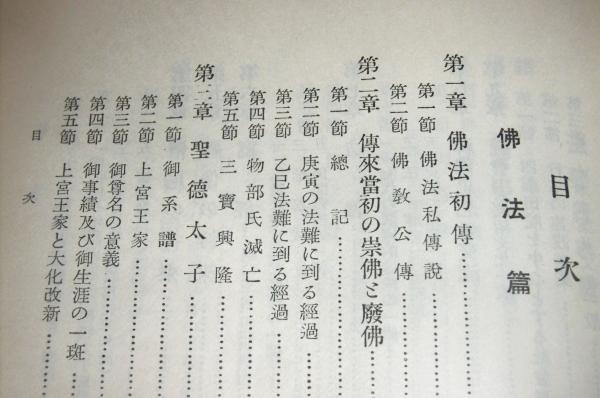 目次
佛法篇
第一章 佛法初傳
第一節 佛法私傳說
第二節 佛敎公傳
第二章 傳來當初の崇佛と廢佛
第一節 總記
第二節 庚寅の法難に到る經過
第三節 乙巳法難に到る經過
第四節 物部氏滅亡
第五節 三寶興隆
第三章 聖德太子
第一節 御系譜
第二節 上宮王家
第三節 御尊名の意義
第四節 御事績及び御生涯の一斑
第五節 上宮王家と大化改新
目次